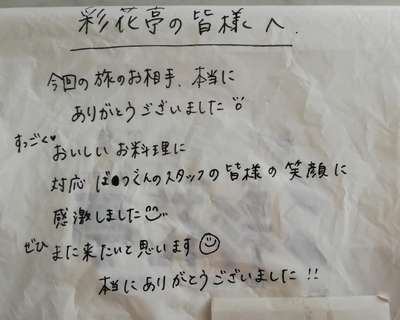 彩花亭の皆様へ.
今回の旅のお相手、本当に
ありがとうございました
すっごく♥
おいしい お料理に
対応 ばつぐんのスタッフの皆様の笑顔に
感激しました
ぜひ また来たいと思います
本当にありがとうございました!!